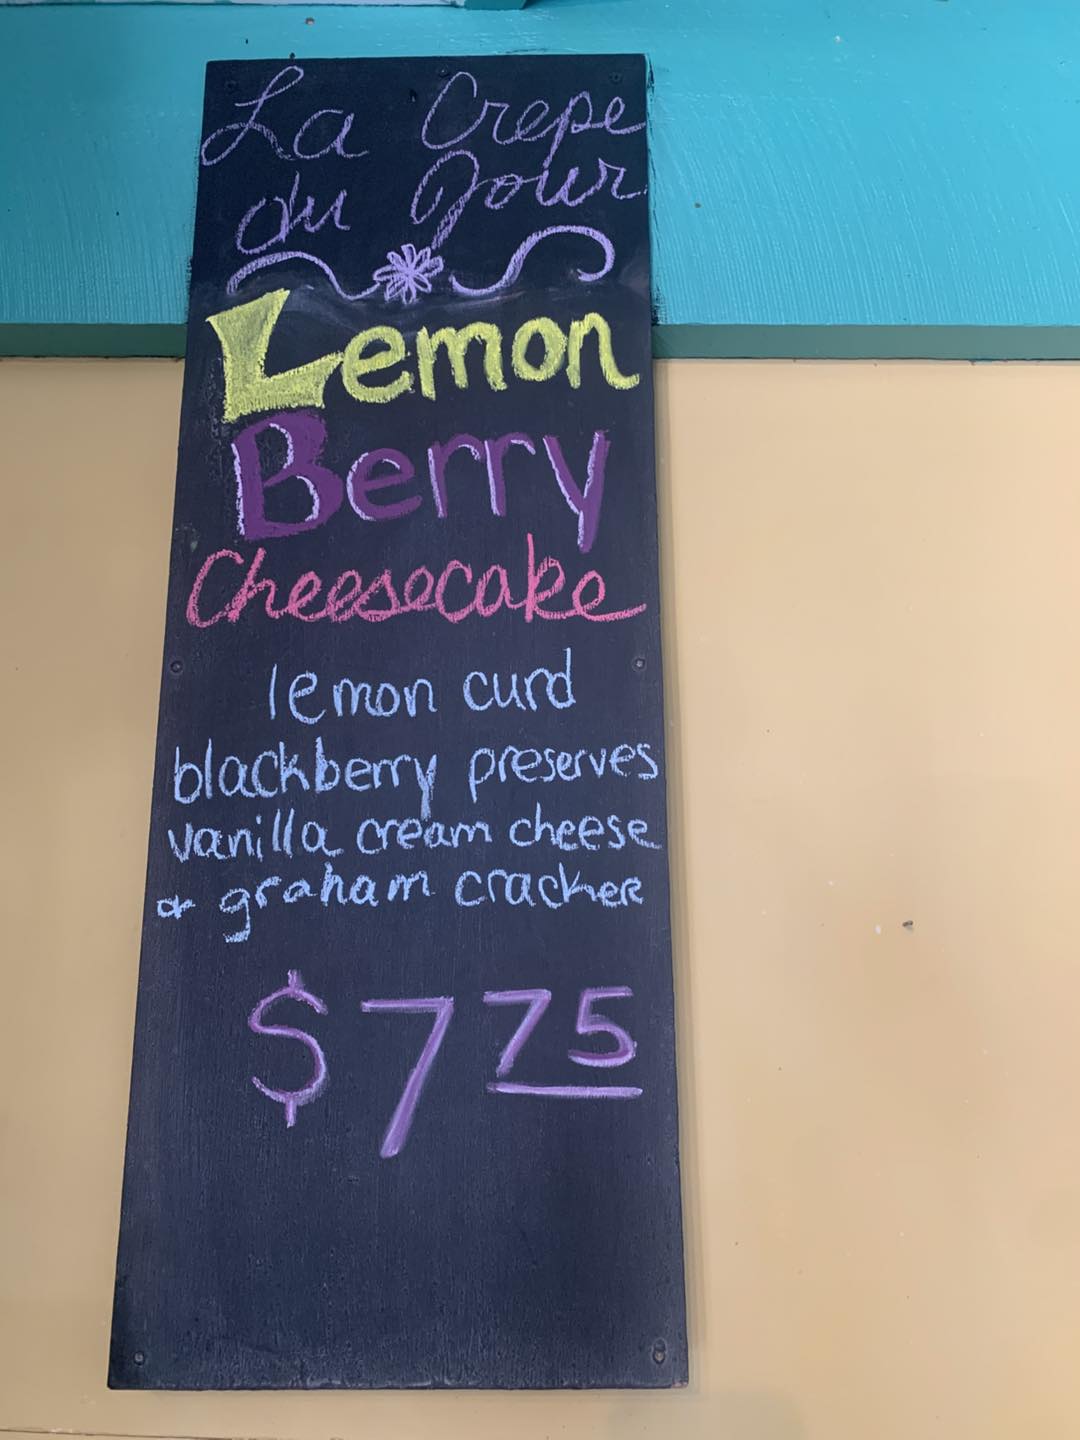 La Crepe
du Jour
Lemon
Berry
Cheesecake
lemon curd
blackberry preserves
vanilla cream cheese
& graham cracker
$7 75